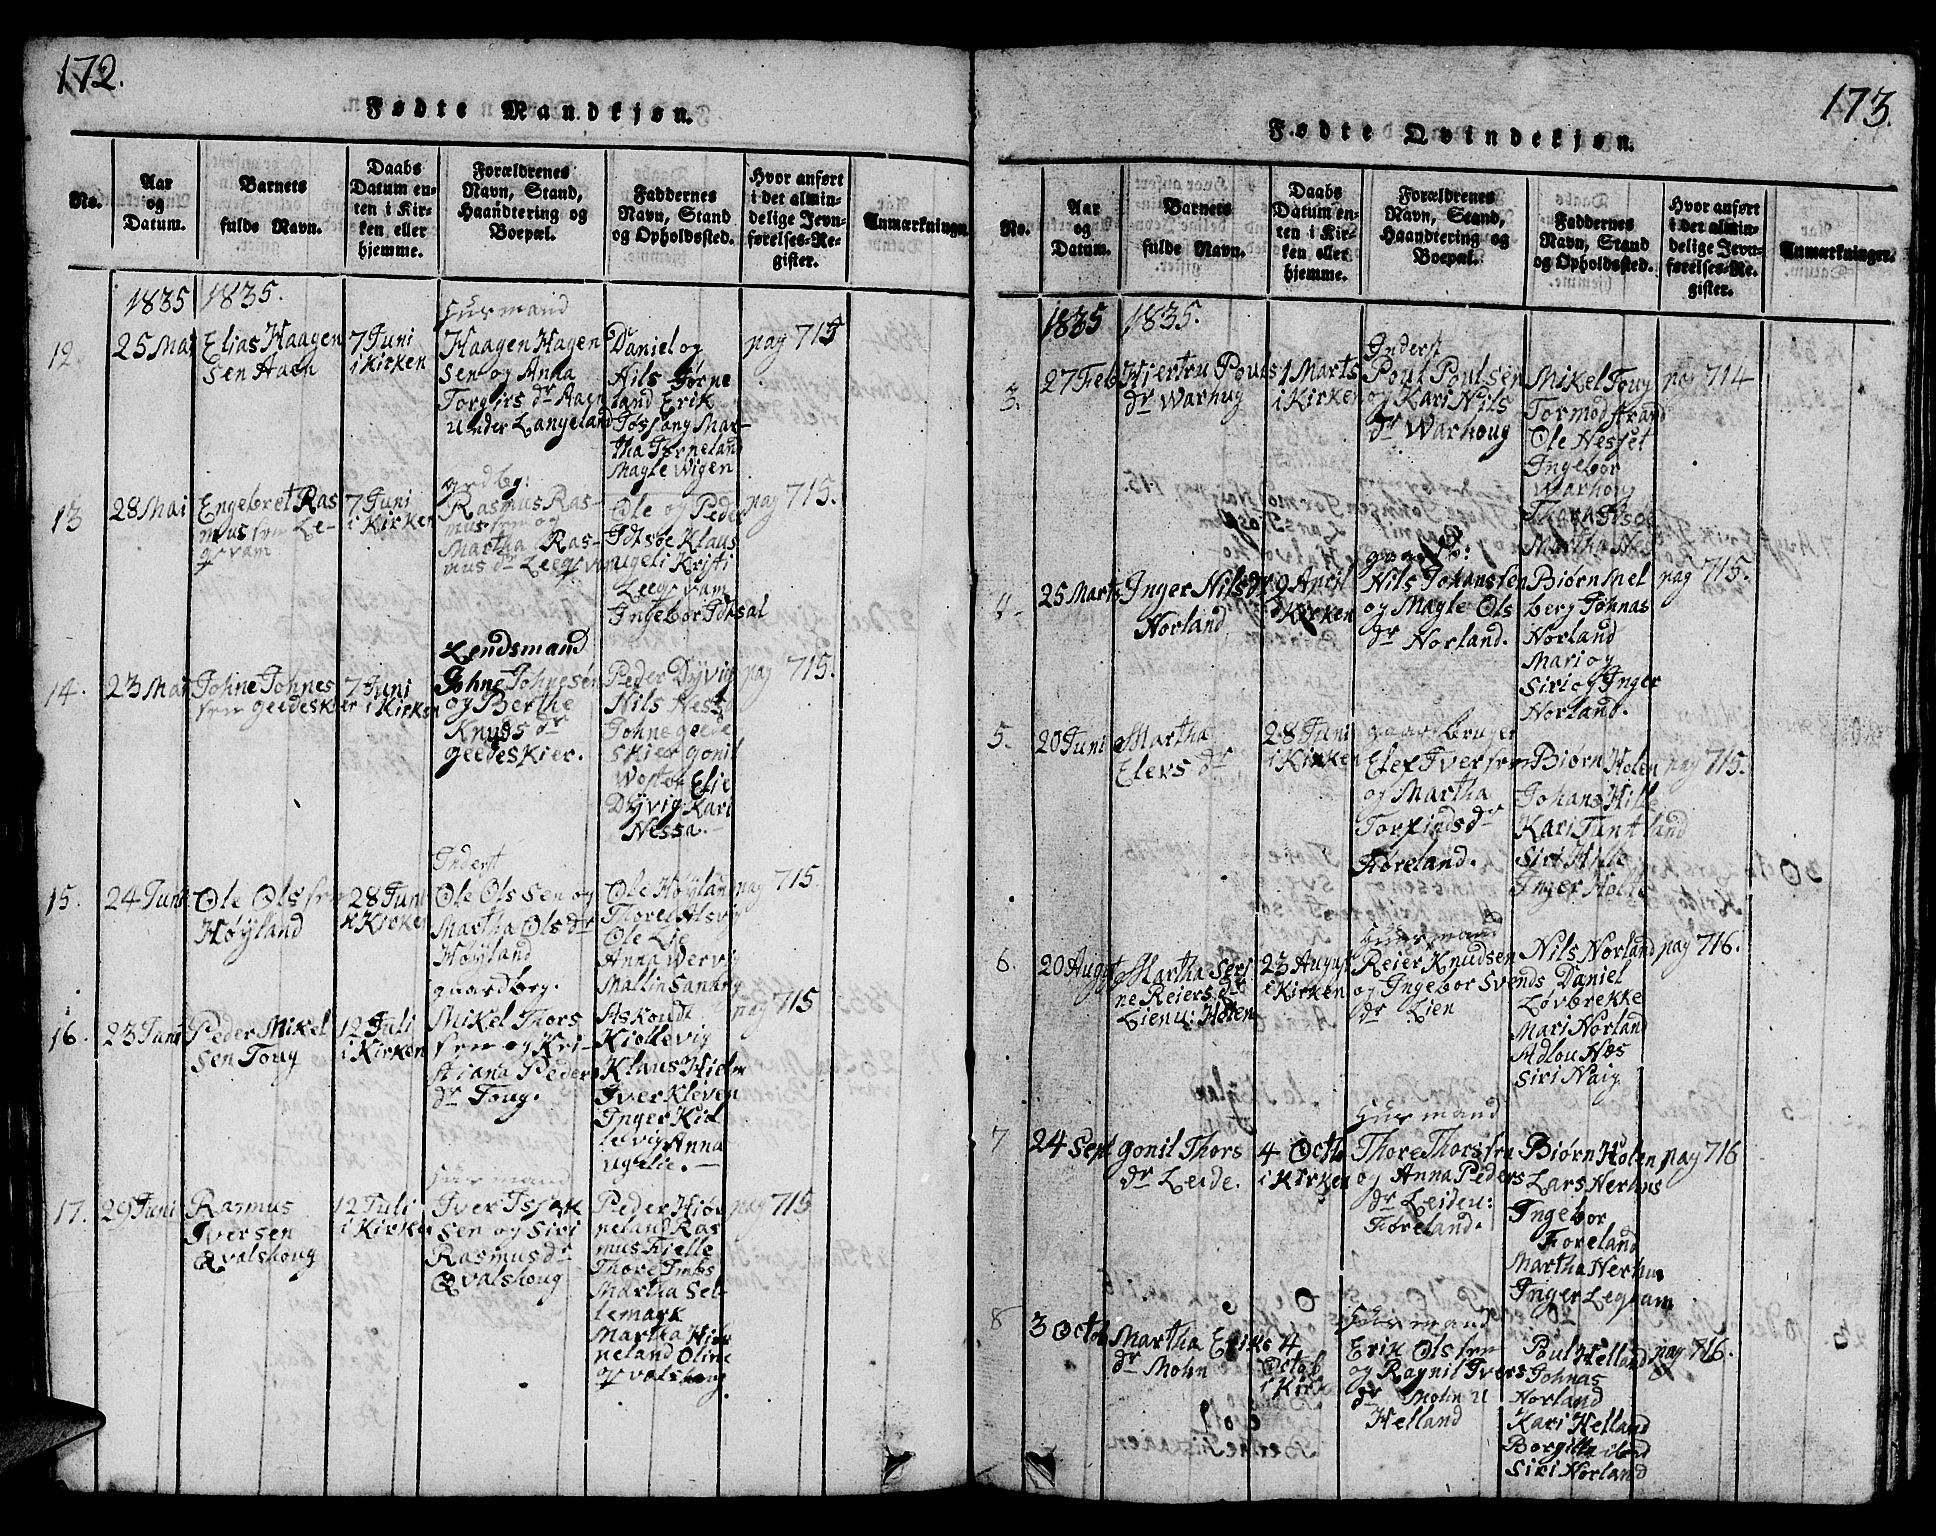 172.
Fødte Mandkjøn.
No.
Aar
og
Datum.
Barnets
fulde Navn.
Daabs
Datum en-
ten i Kir-
ken eller
hjemme.
Forældrenes
Navn, Stand,
Haandtering og
Boepæl.
Faddernes
Navn, Stand
og Opholdssted.
Hvor anført
i det almin-
delige Jevn-
førelses-Re-
gister.
Anmærkninger.
1835
1835.
12
25 Mai
Elias Haagen
sen Aasn
7 Juni
i Kirken
Huusmand
Haagen Hagen
sen og Anna
Torgirs dr Aasn
under Langeland
Daniel og
Nils Førne
land Erik
Fossang Mar-
tha Førneland
Magle Wigen
pag 715
13
28 Mai
Engebret Ras
mussen Le-
qvam
7 Juni
i Kirken
grdbg:
Rasmus Ras-
mussen og
Martha Ras-
mus dr Leeqvam
Ole og Peder
Idtsøe Klaus
ugeli Kristi
Leeqvam
Ingebor Idtsal
pag 715.
14.
23 Mai
Johne Johnes
sen geedeskier
7 Juni
i Kirken
Lendsmand
Johne Johnesen
og Berthe
Knuds dr
geedeskier.
Peder Dyvig
Nils Nessa
Johne geede
skier gonil
Wostøe Elie
Dyvig Kari
Nessa.
pag 715.
15.
24 Juni
Ole Olssen
Høyland
28 Juni
i Kirken
Inderst
Ole Olssen og
Martha Ols dr
Høyland
Ole Høyland
Thore Alsvig
Ole Lie
Anna Wervig
Mallin Sandvig
pag 715.
16.
23 Juni
Peder Mikel
sen Toug
12 Juli
i Kirken
gaardbrg.
Mikel Thors
sen og Kri-
stiana Peders
dr Toug.
Askoudt
Kiollevig
Klaus Hielm
Iver Kleven
Inger Kiel
levig Anna
ugelie.
pag 715
17.
29 Juni
Rasmus
Iversen
Qvalshoug
12 Juli
i Kirken
Huusmand
Iver Issak
sen og Siri
Rasmus dr
Qvalshoug
Peder Hiør
neland Ras
mus Fielle
Thore Imbs
Martha Sel-
lemark
Martha Hiør
neland Oline
qvalshoug.
pag 715
173.
Fødte Qvindekjøn.
No.
Aar
og
Datum.
Barnets
fulde Navn.
Daabs
Datum en-
ten i Kir-
ken eller
hjemme.
Forældrenes
Navn, Stand,
Haandtering og
Boepæl.
Faddernes
Navn, Stand
og Opholdssted.
Hvor anført
i det almin-
delige Jevn-
førelses-Re-
gister.
Anmærkninger.
1835
1835.
3.
27 Feb
Hiertru Pouls
dr Warhug
1 Marts
i Kirken
Inderst
Poul Poulsen
og Kari Nils
dr Warhoug
Mikel Toug
Tormod strand
Ole Nesset
Ingebor
Warhoug
Martha
pag 714
4
25 Marts
Inger Nilsdr
Norland
9 April
i Kirken
Nils Johanssen
og Magle Ols
dr Norland.
Biørn Mel
berg Johnas
Norland
Mari og
Siri og Inger
Norland.
pag 715.
5.
20 Juni
Martha
Elevs dr
28 Juni
i Kirken
gaardbruger
Elef Iverssen
og Martha
Torfinds dr
Føreland.
Biørn Holen
Johans Hille
Kari Tuntland
Siri Hille
Inger Holle
pag 715.
6.
20 August
Martha Seri
ne Reiers dr
Lien u: Holen
23 August
i Kirken
Huusmand
Reier Knudsen
og Ingebor Svends
dr Lien
Nils Norland
Daniel
Løvbrekke
Mari Norland
Adlou Næs
Siri Naig
pag 716.
7
24 Sept
gonil Thors
dr Leide.
4 Octb
i Kirken
Huusmand
Thore Thorssen
og Anna Peders
dr Leide u:
Føreland.
Biørn Holen
Lars Nerhus
Ingebor
Foreland
Martha Nerhus
Inger Leqvam
pag 716
8
3 Octob
Martha Eriks
dr Mohn
4
Octob
i Kirk
Huusmand
Erik Olssen
og Ragnil Ivers
dr Mohn u
Helland
Poul Helland
Johnas
Norland
Kari Helland
Siri Norland
pag 716.